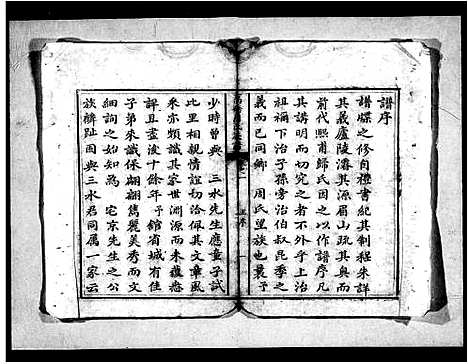 譜序
譜牒之修自禮書紀其制程朱詳
其義廬陵濬其源眉山疏其奥而
前代熙甫歸氏因之以作譜序凡
其講明而切究之者不外乎上治
祖禰下治子孫旁治伯叔昆季之
義而已同鄉 周氏望族也曩予
少時曾與 三水先生應童子試
比里相親情誼切洽佩其文章風
釆亦頗識其家世淵源而未蘊悉
詳且盡後十餘年予館省城有佳
子弟朱識翩翩雋麗美秀而文
細詢之始知為 宅京先生之公
族麟趾固與三水君同属一家云